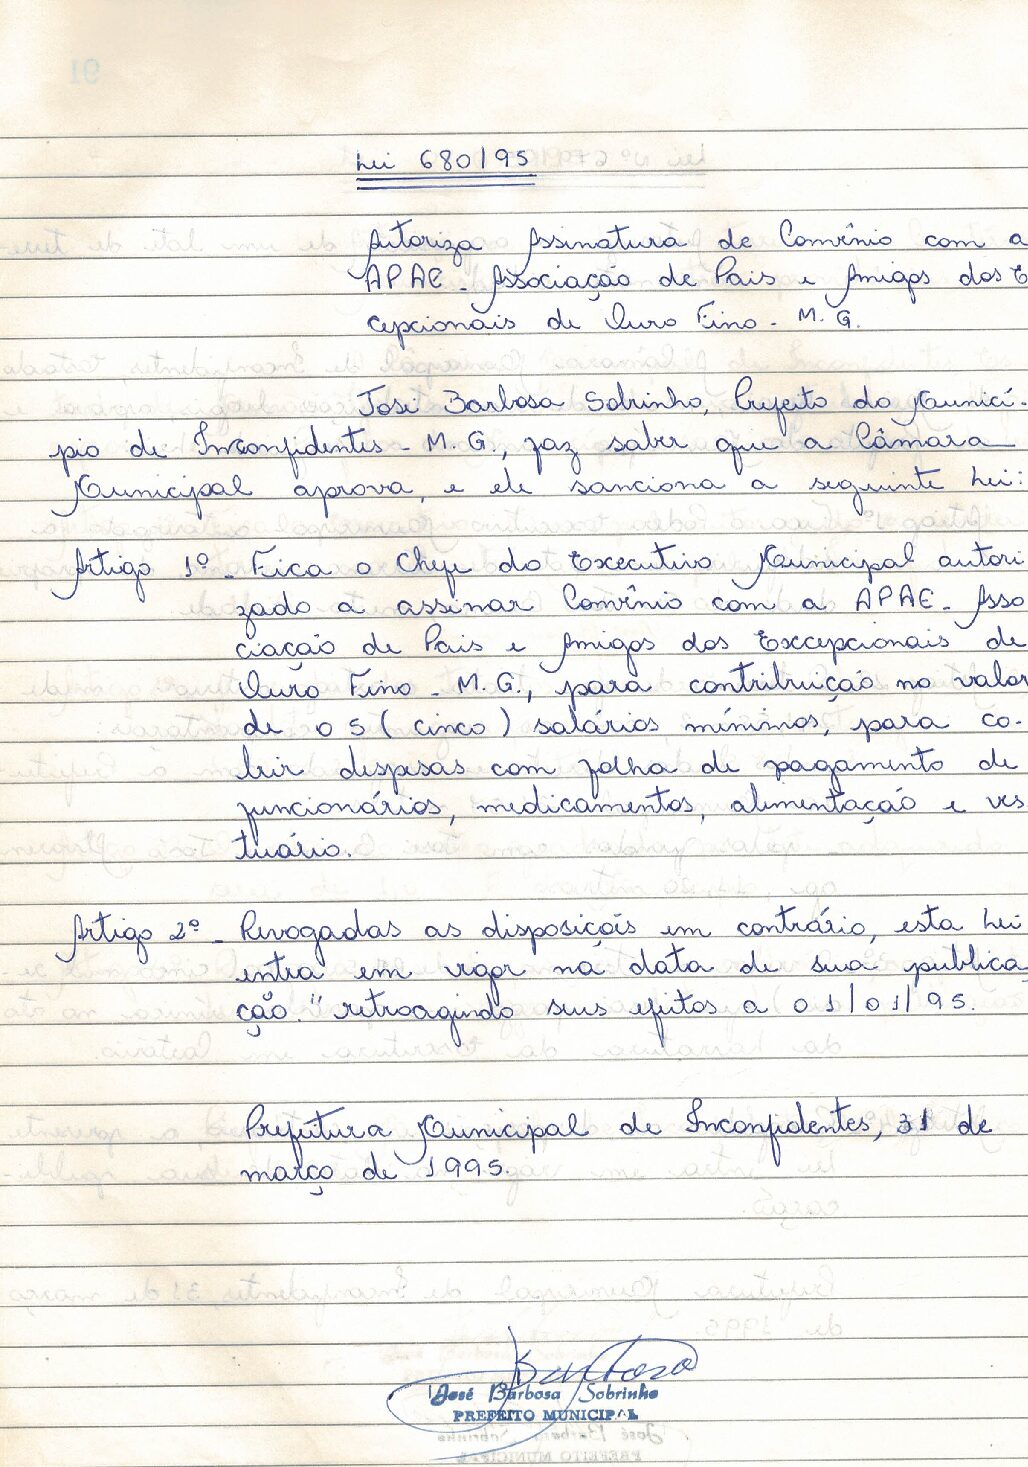 Lei 680/95
Autoriza Assinatura de Convênio com a
APAE - Associação de Pais e Amigos dos E
cepcionais de Ouro Fino - M.G.
José Barbosa Sobrinho, Prefeito do Municí-
pio de Inconfidentes - M.G., faz saber que a Câmara
Municipal aprova, e ele sanciona a seguinte Lei:
Artigo 1º - Fica o Chefe do Executivo Municipal autori
zado a assinar Convênio com a APAE - Asso
ciação de Pais e Amigos dos Excepcionais de
Ouro Fino - M.G., para contribuição no valor
de 05 (cinco) salários mínimos, para co-
brir despesas com folha de pagamento de
funcionários, medicamentos, alimentação e ves
tuário.
Artigo 2º - Revogadas as disposições em contrário, esta Lei
entra em vigor na data de sua publica
ção." retroagindo seus efeitos a 01/01/95.
Prefeitura Municipal de Inconfidentes, 31 de
março de 1995.
José Barbosa Sobrinho
PREFEITO MUNICIPAL